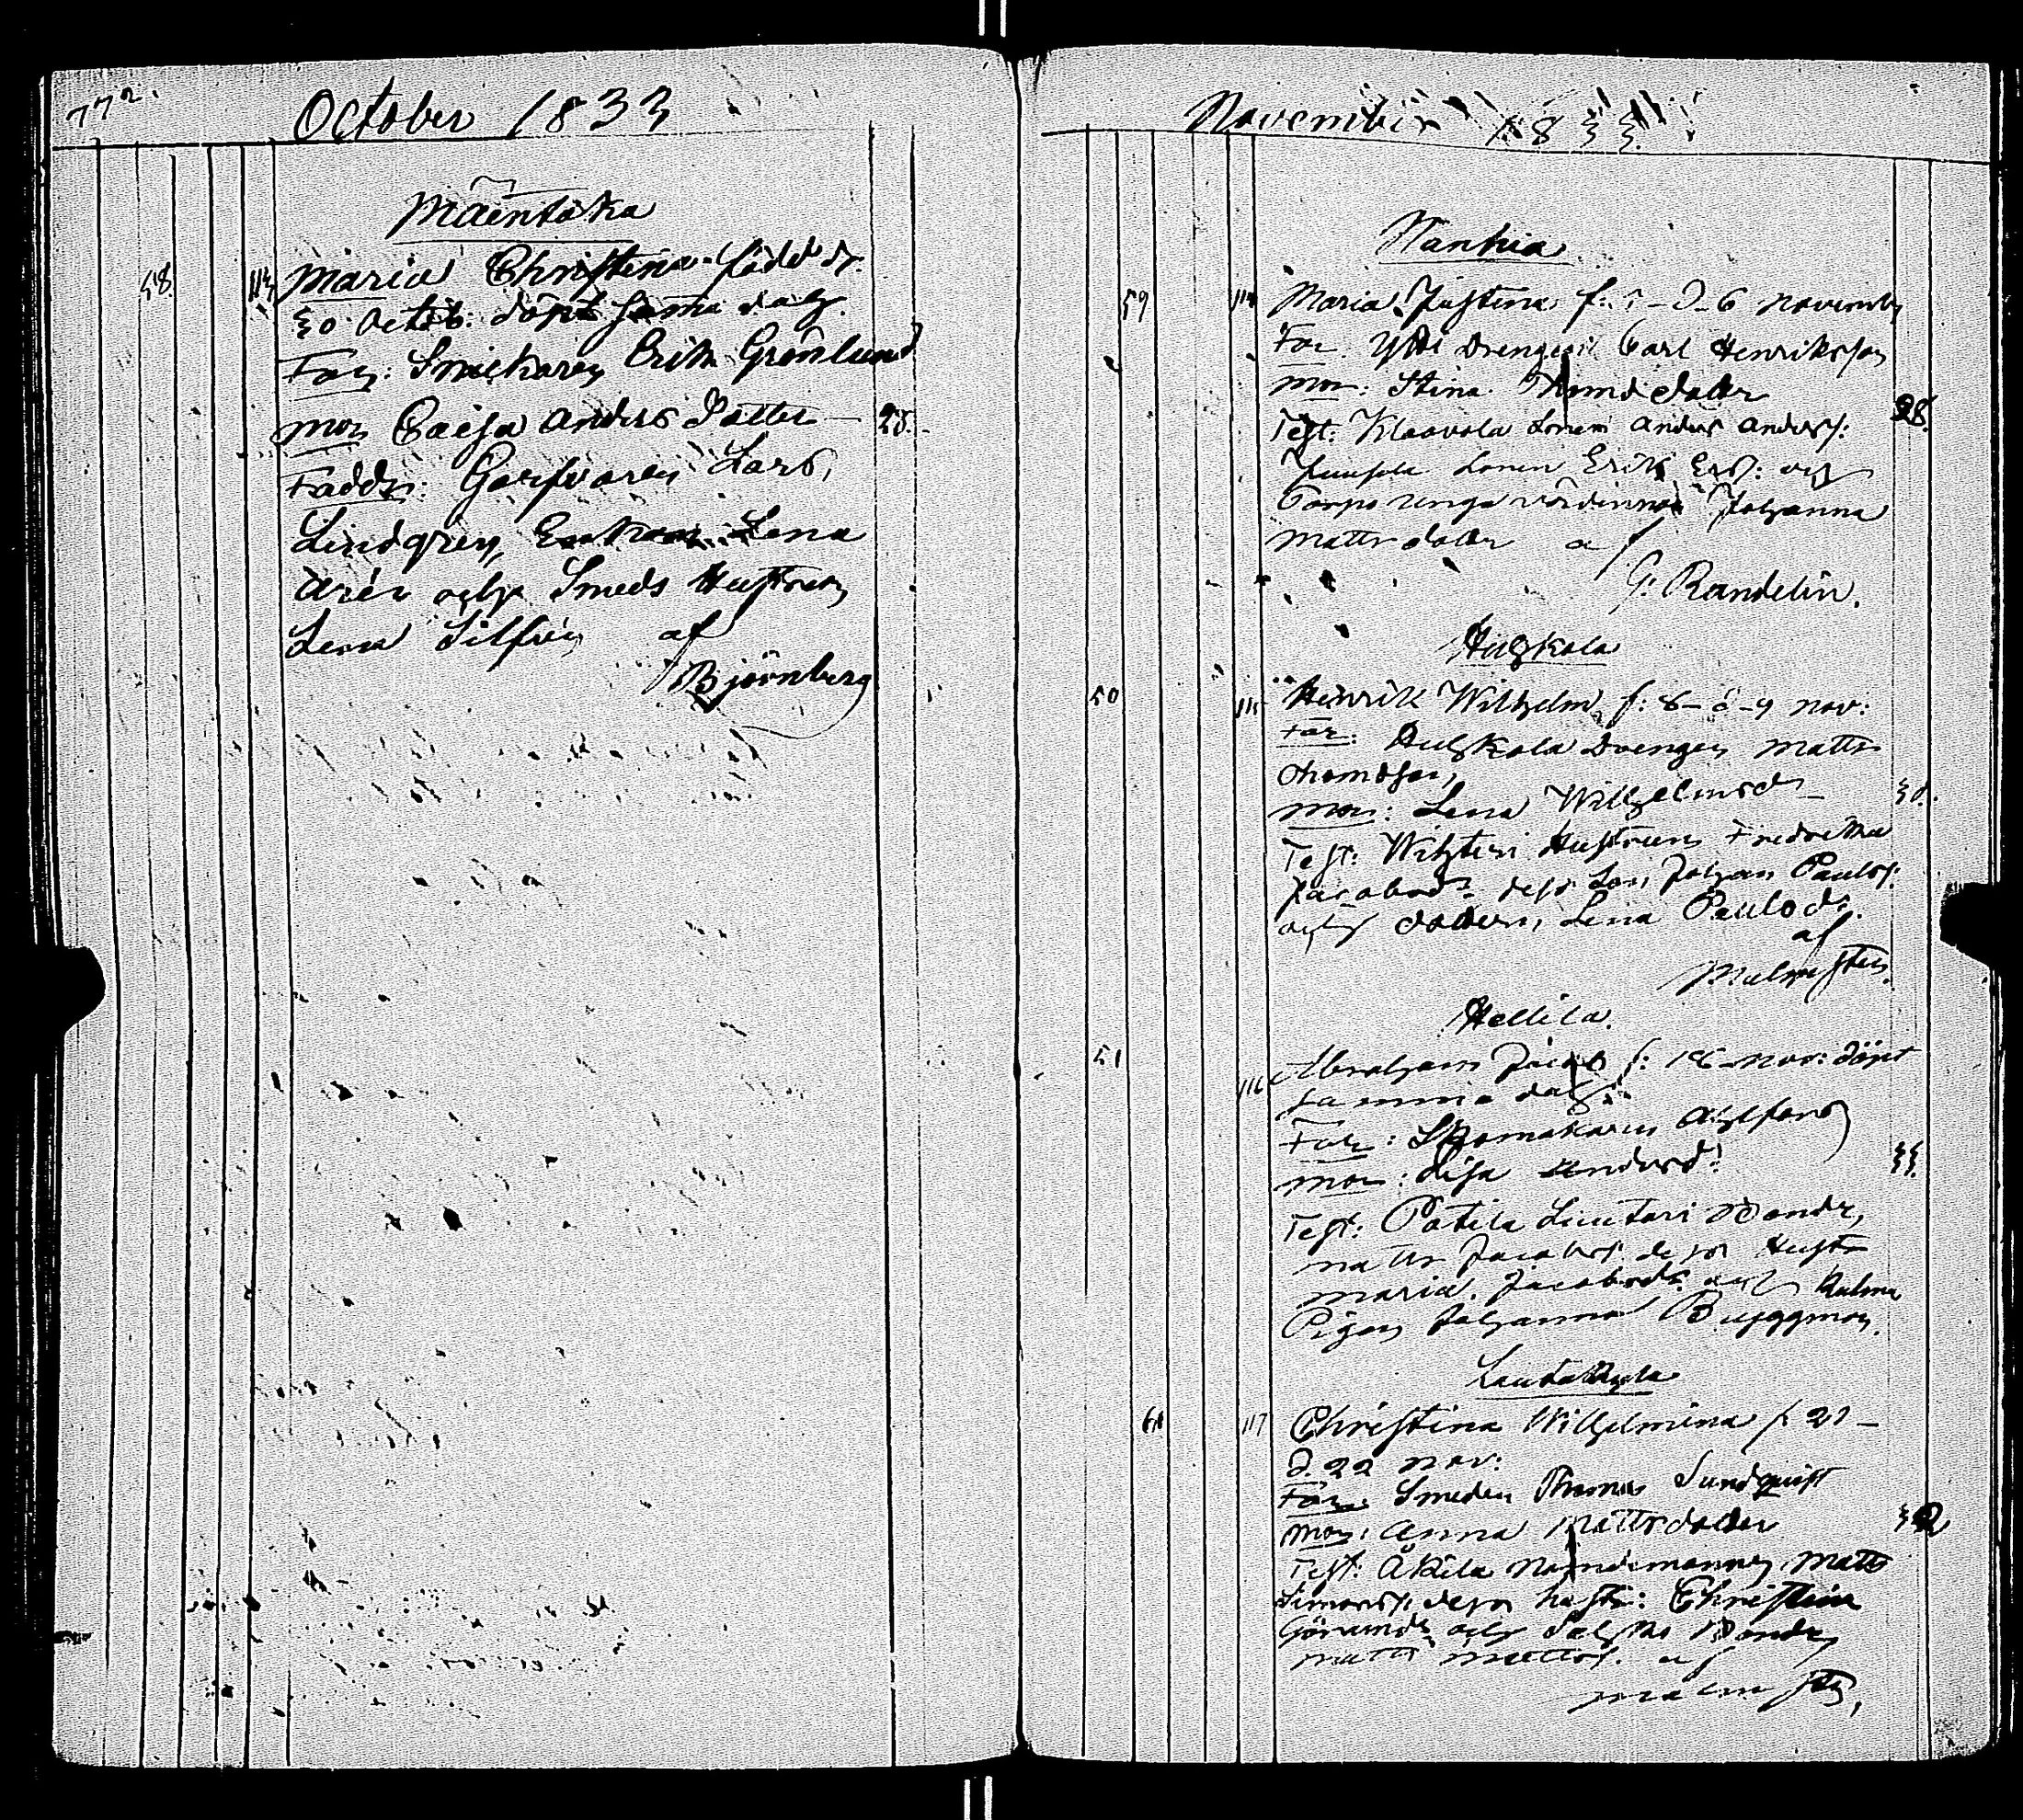 772.
October 1833
Mäentaka
58. 113 Maria Christina född d.
30 Octob: döpt samma dag.
Far: Snickaren Erik Grönlund
mor Caisa Anders Dotter — 25.
Faddr: Garfvaren Lars
Lindgren, Enkan Lena
Arén och Smeds Hustrun
Lena Silfvén af
Björnberg
November 1833
Nanhia
59 114 Maria Justina f: 5 – d. 6 novemb
Far Drengen Carl Henriksson
mor: Stina Dotter
28.
Test: Klaavola Sonen Anders Anders:
Juusela Sonen Erik Ers: och
Torpo unga värdinnan Johanna
Matts dotter af
G. Randelin.
Huhkola
50 115 Henrik Wilhelm f: 8 – d – 9 nov:
Far: Huhkola Drengen Matts
Thomasson
mor: Lena Wilhelmsdr 30.
Test: Hustrun Fredrika
Jacobsdr dess Son Johan Pauls:
och dottern Lena Paulsdr.
af
Malmsten.
Hellila.
51 116 Abraham Jacob f: 16 nov: döpt
samma dag.
Far: Skomakaren Ahlfors
mor: Lisa Andersd: 33.
Test: Potila Luutari Bonden
Matts Jacobs: dess Hustr
Maria Jacobsdr och
Pigan Johanna Byggmän.
Lautakylä
61 117 Christina Wilhelmina f. 21 –
d. 22 nov:
Far: Smeden Thomas Sundquist
mor: Anna Mattsdotter 32
Test: Äkilä Nämndemannen Matts
Simons: dess hustr: Christina
Göransdr och Bonden
Matts Matts: af
Malmsten.